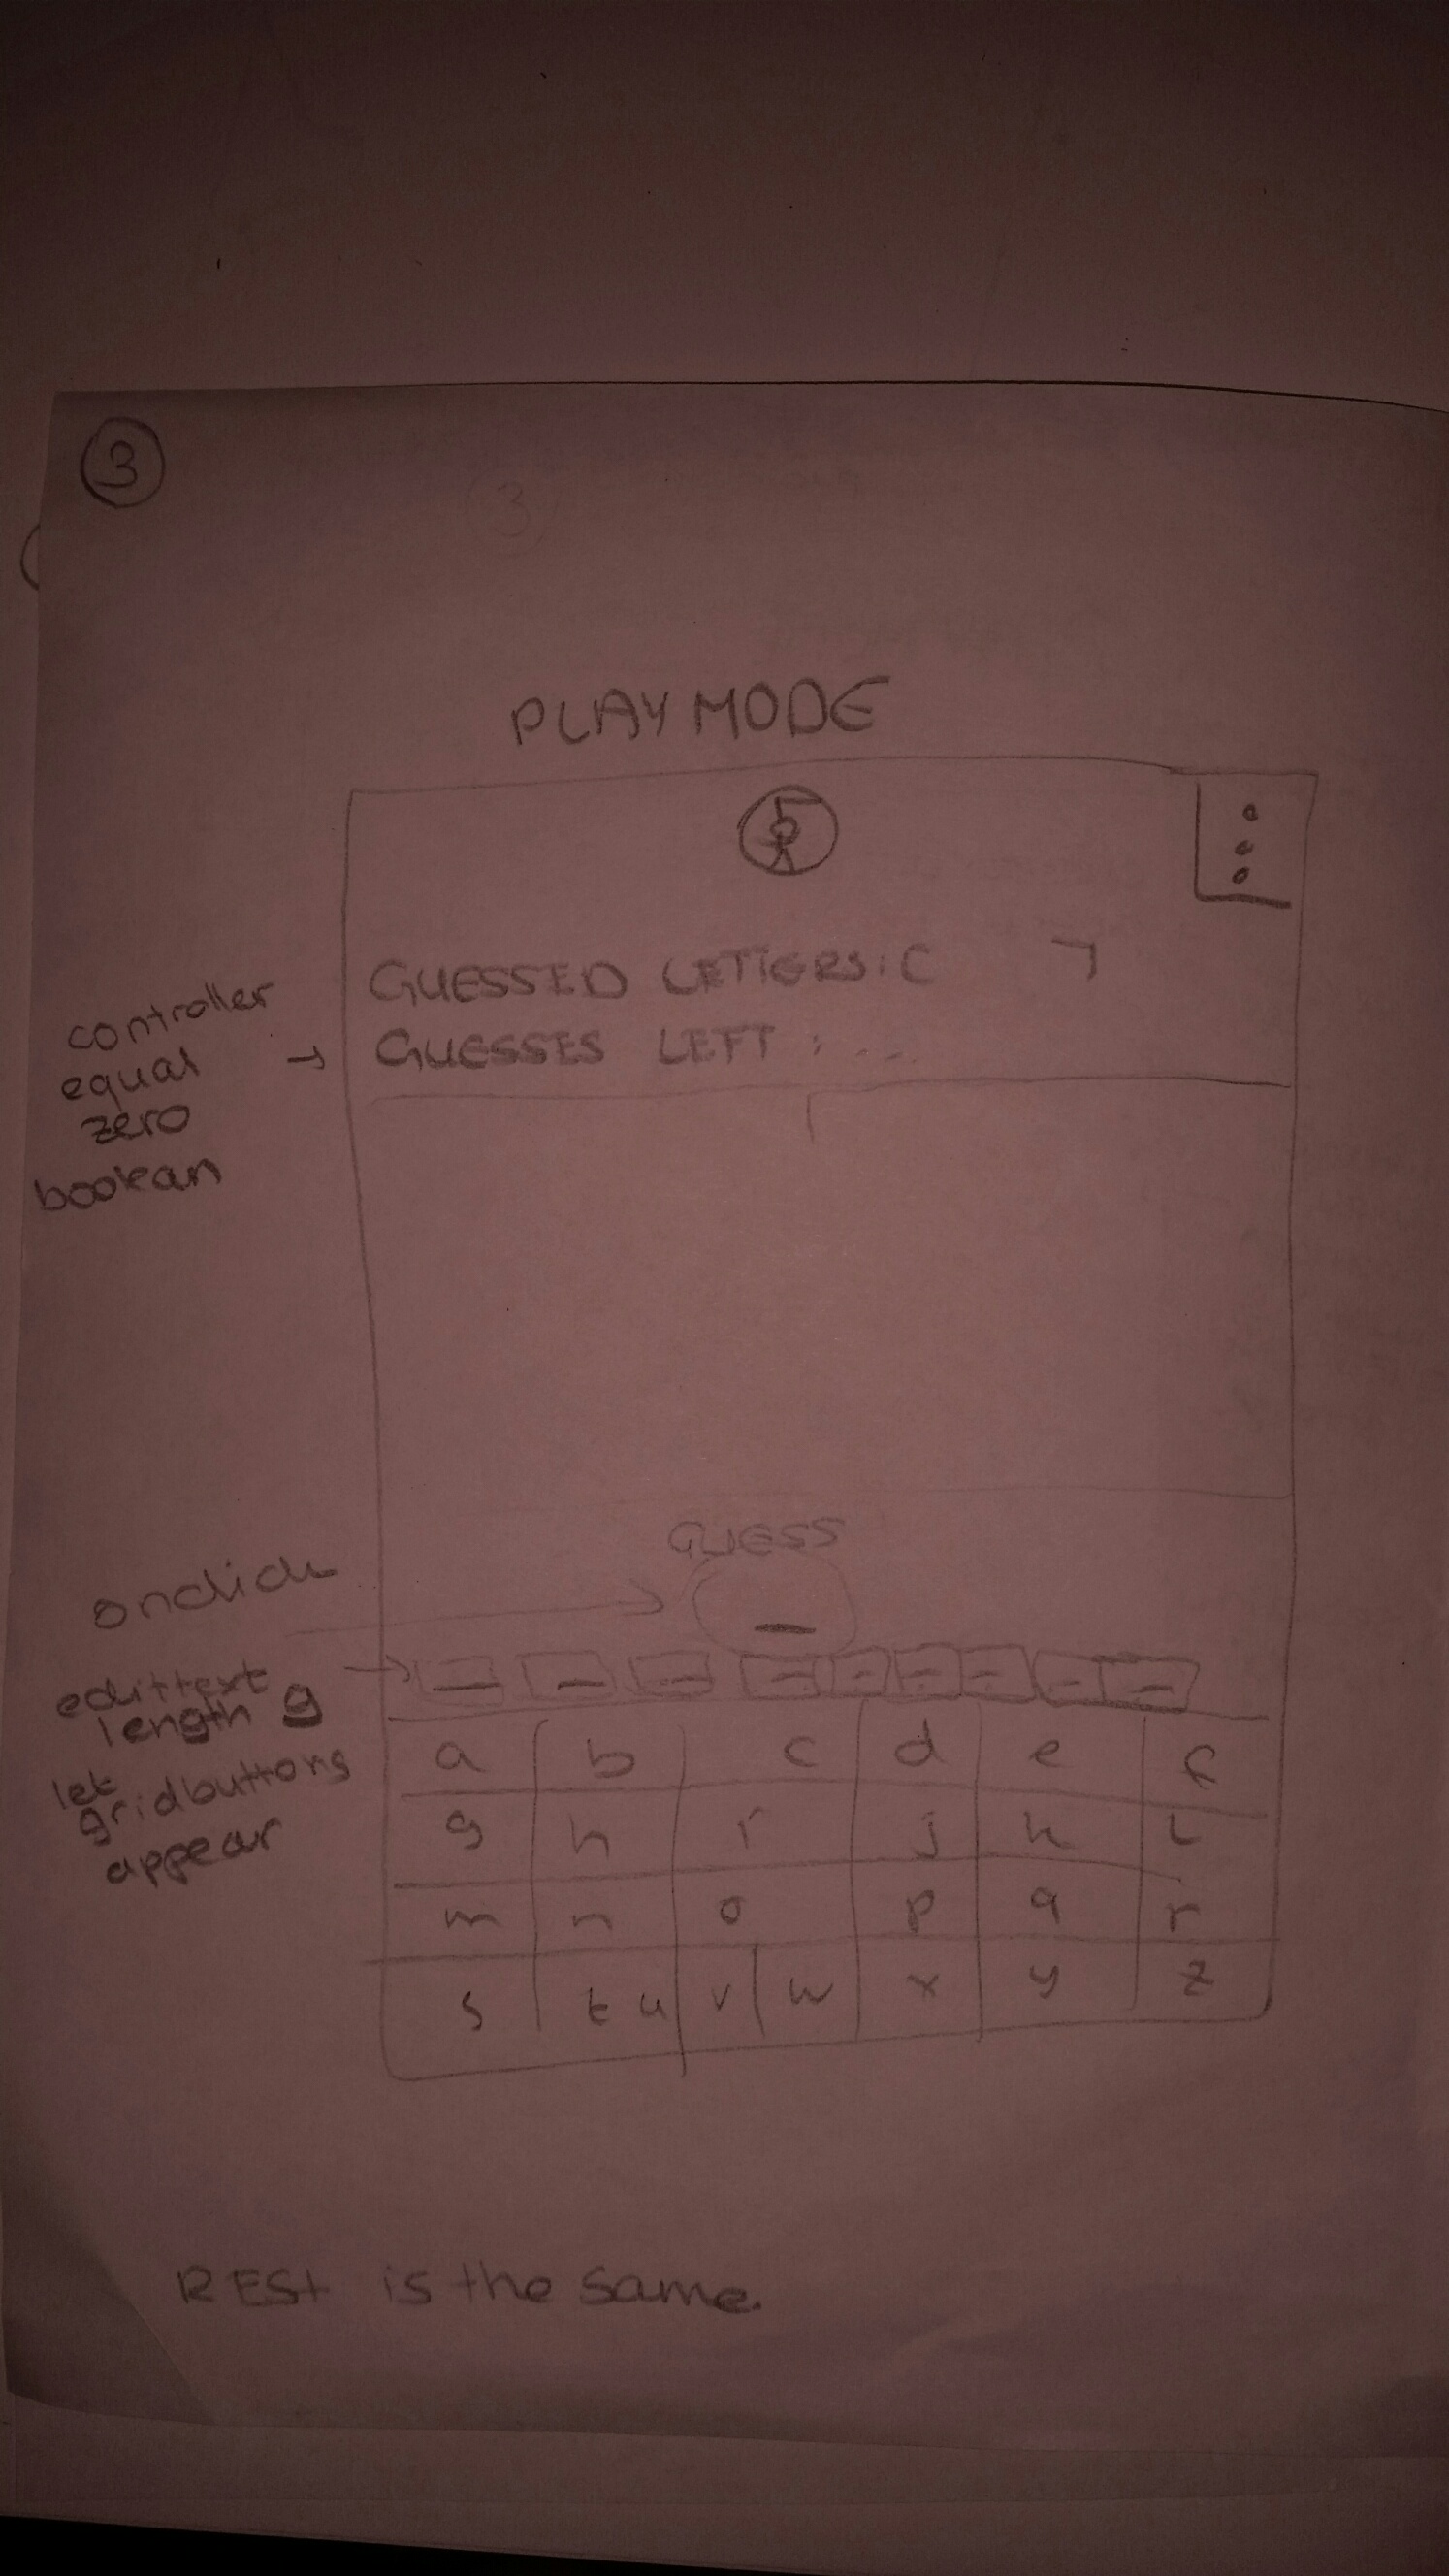 3
3
PLAY MODE
GUESSED LETTERS: [ ]
controller
equal
zero
boolean
→ GUESSES LEFT : ...
GUESS
onclick
edittext
length 9
let
gridbuttons
appear
a b c d e f
g h i j k l
m n o p q r
s t u v w x y z
REST is the same.